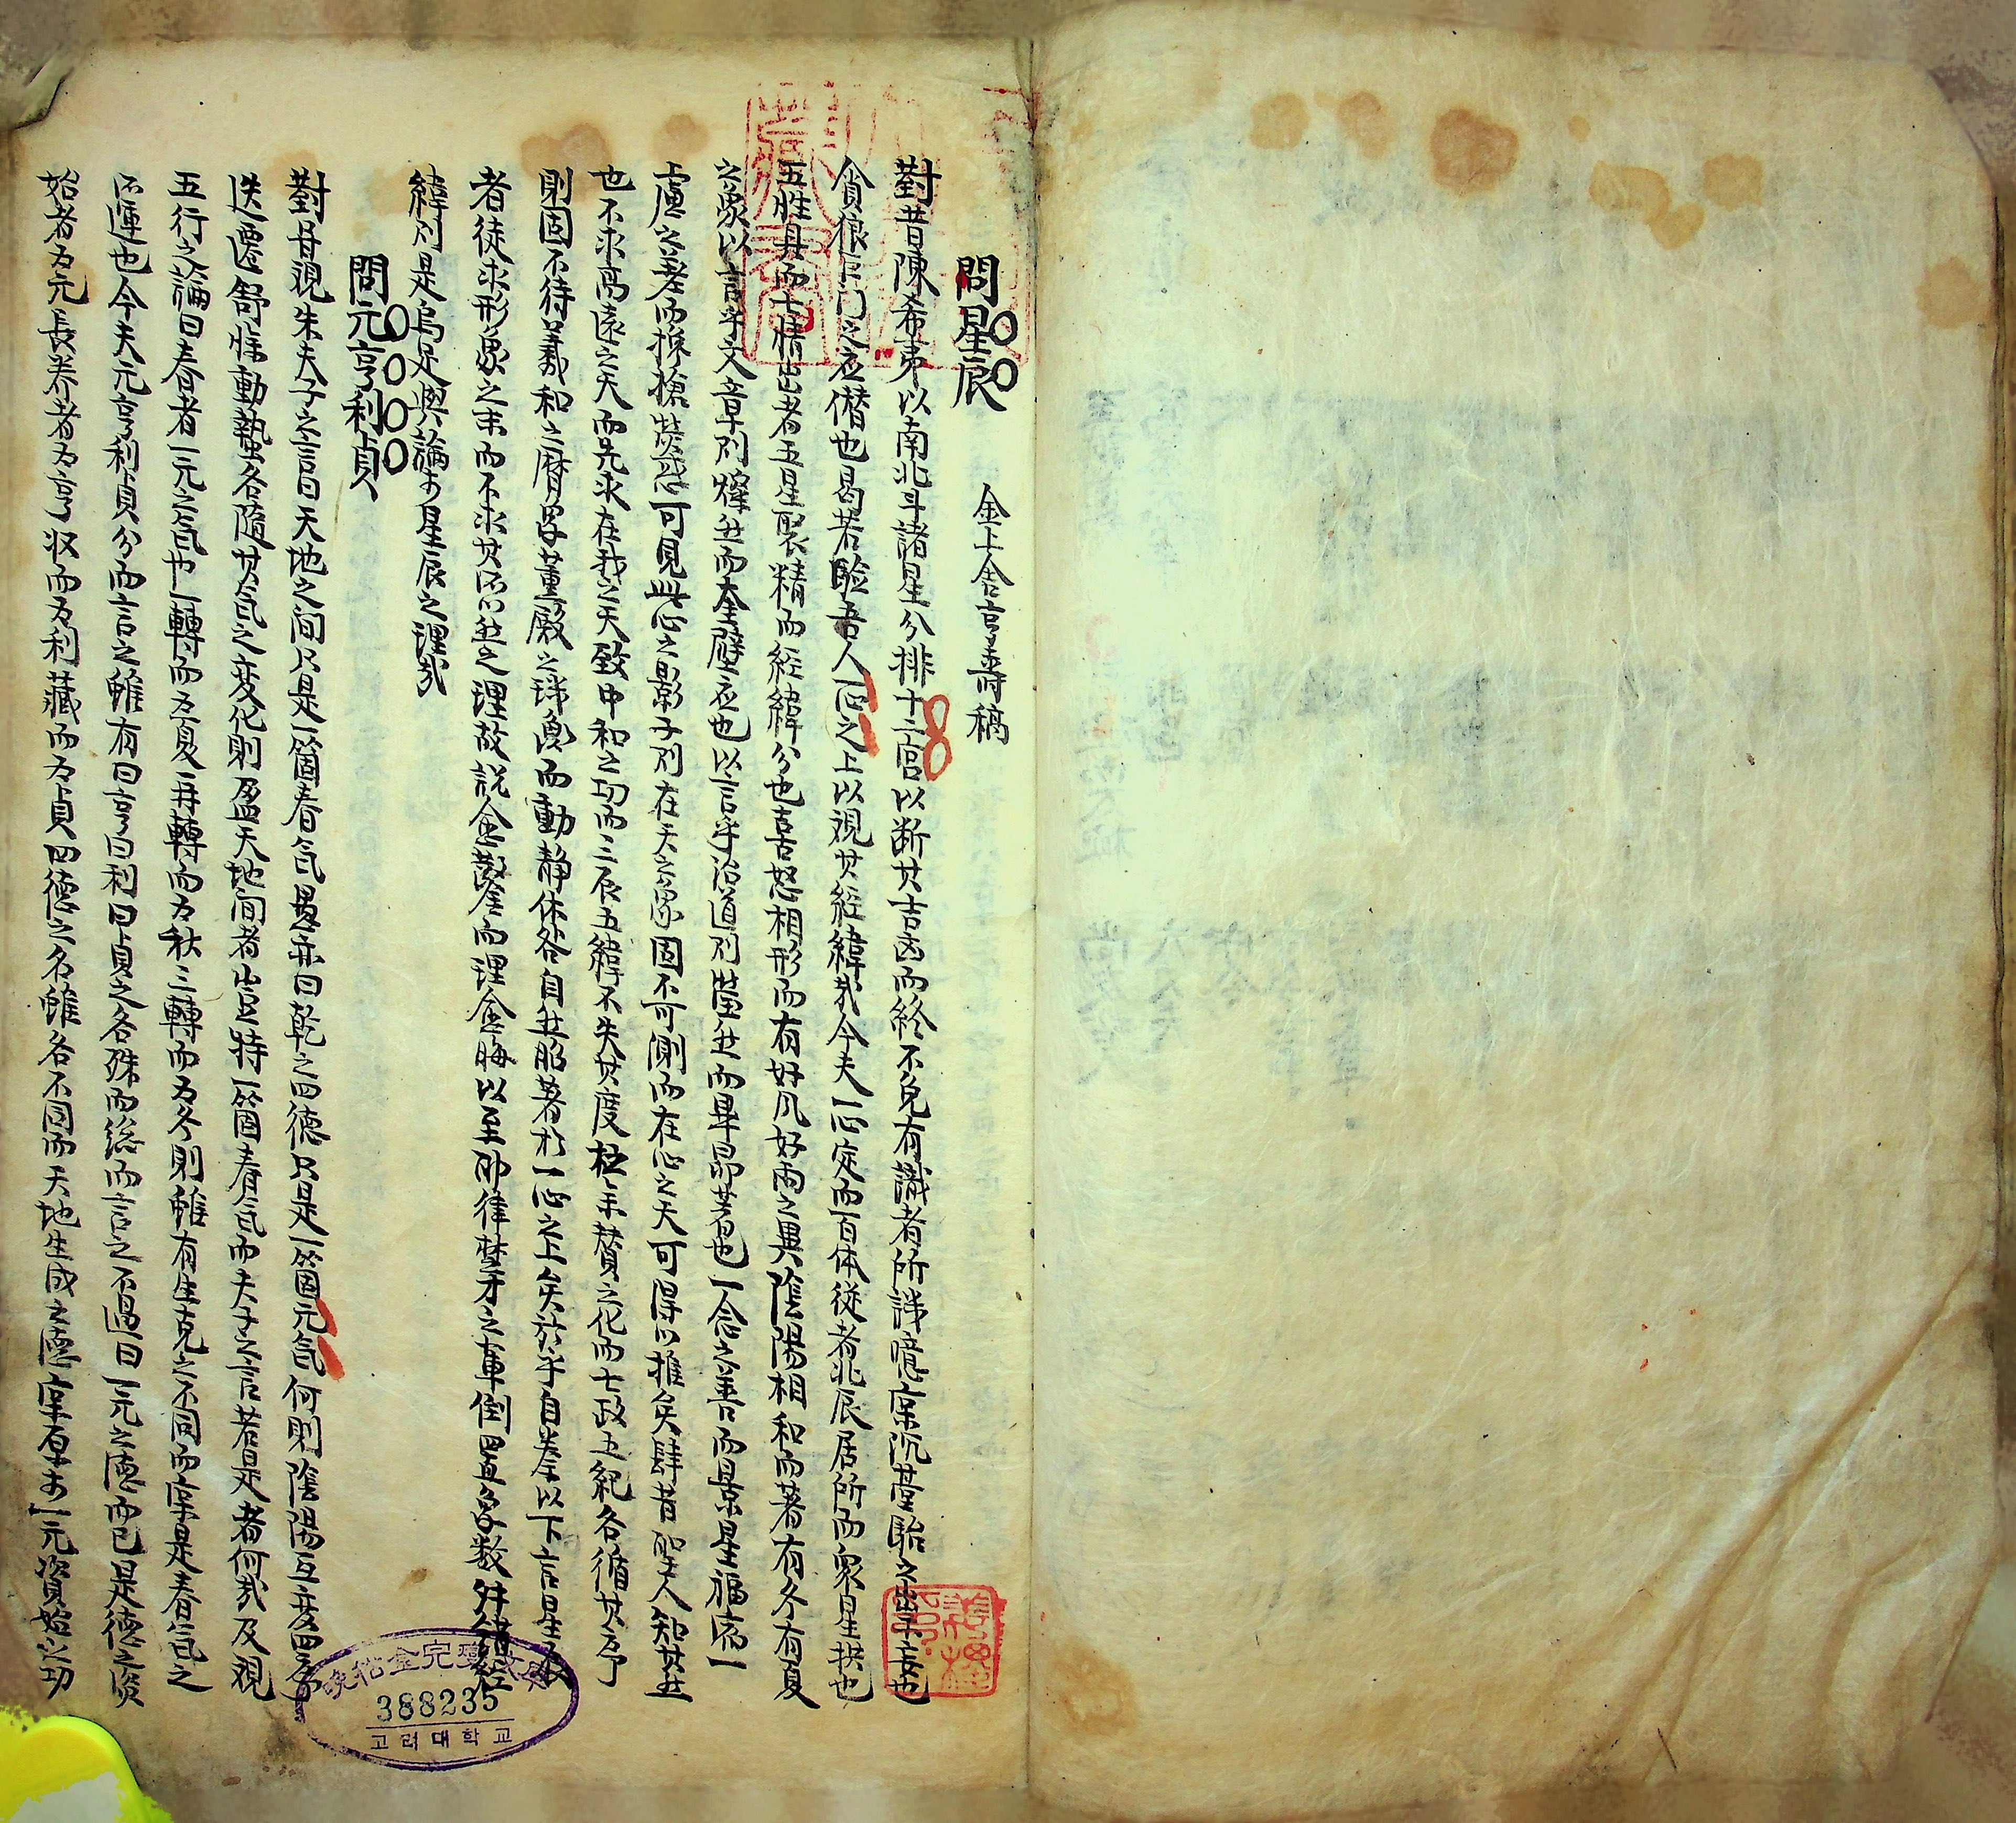 問星辰
金上舍亨壽稿
對昔陳希夷以南北斗諸星分排十二宮以断其吉凶而終不免有識者所誚噫寀沉臺駘之出乎妄也
貪狼巨門之応僭也曷若驗吾人一心之上以視其經緯哉今夫一心定而百体從者北辰居所而衆星拱也
五性具而七情出者五星聚精而經緯分也喜怒相形而有好風好雨之異陰陽相和而著有冬有夏
之象以言乎文章則燁然而奎壁応也以言乎治道則瑩然而畢昴著也一念之善而景星福臨一
慮之差而欃槍熒惑可見此心之影子則在天之象固不可測而在心之天可得以推矣肆昔聖人知其然
也不求高遠之天而先求在我之天致中和之功而三辰五緯不失其度極參贊之化而七政五紀各循其序
則固不待羲和之曆
而動静休咎自然昭著於一心之上矣於乎自秦以下言星
者徒求形象之末而不求其所以然之理故說愈鑿而理愈晦以至
律
之事倒置象数
緯則是烏足與論於星辰之理哉
問元亨利貞
對甞親朱夫子之言曰天地之間只是一箇春氣愚亦曰乾之四德只是一箇元氣何則陰陽互変四序
迭遷舒慘動蟄各隨其氣之変化則盈天地間者豈特一箇春氣而夫子之言若是者何哉及觀
五行之論曰春者一元之氣也一轉而為夏再轉而為秋三轉而為冬則雖有生克之不同而寀是春氣之
所運也今夫元亨利貞分而言之雖有曰亨曰利曰貞之各殊而総而言之不過曰一元之德而已是德之資
始者為元長养者為亨収而為利藏而為貞四德之名雖各不同而天地生成之德寀原於一元資始之功
388235
고려대학교